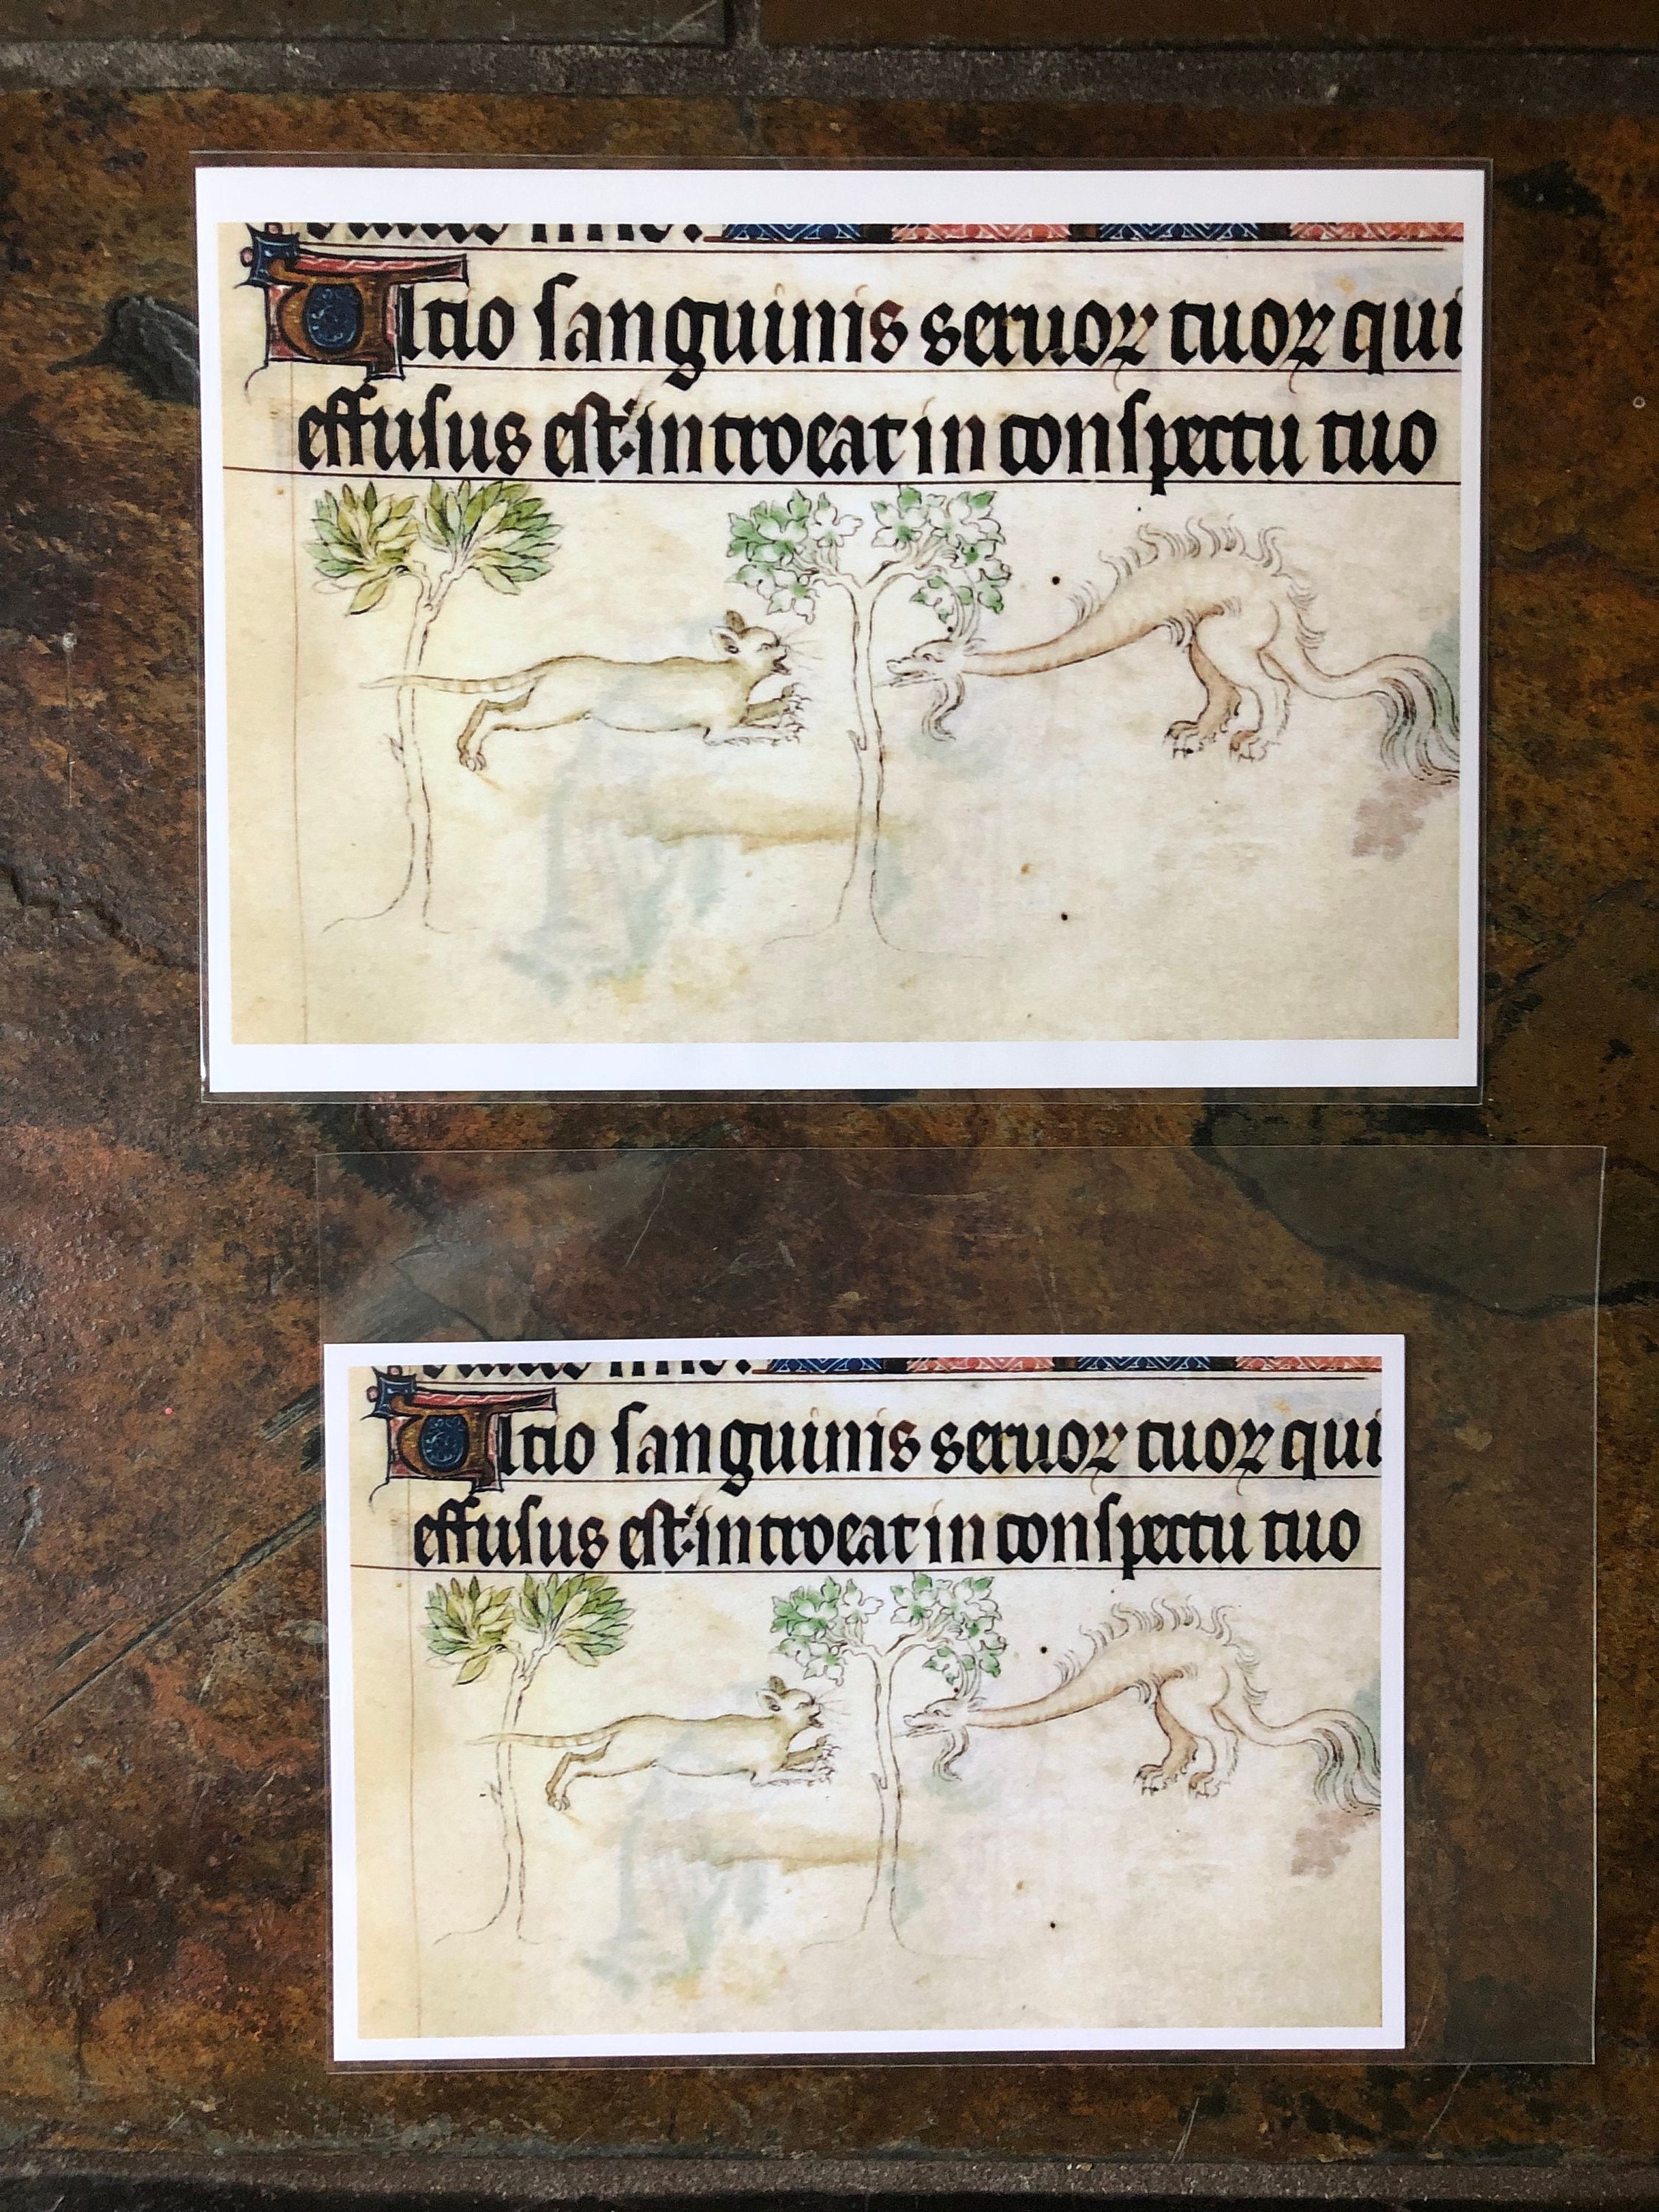 Ultio sanguinis seruoꝝ tuoꝝ qui
effusus est: introeat in conspectu tuo
Ultio sanguinis seruoꝝ tuoꝝ qui
effusus est: introeat in conspectu tuo